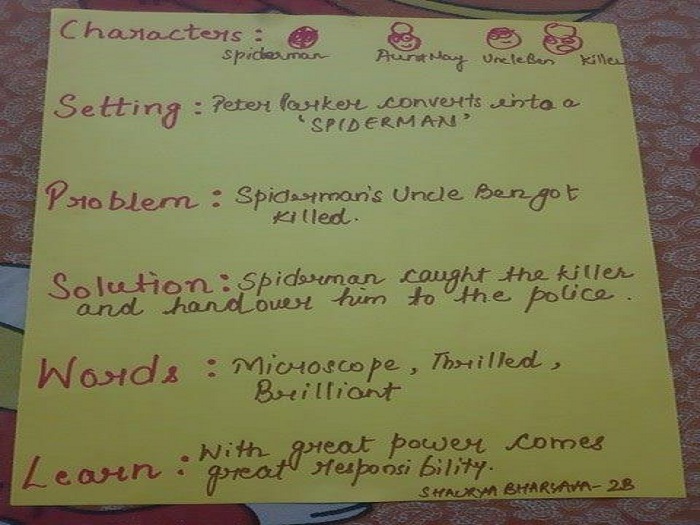 Characters:
Spiderman Aunt May Uncle Ben Killer
Setting: Peter Parker converts into a
'SPIDERMAN'
Problem: Spiderman's Uncle Ben got
killed.
Solution: Spiderman caught the killer
and handover him to the police.
Words: Microscope, Thrilled,
Brilliant
Learn: With great power comes
great responsibility.
SHAURYA BHARGAVA-2B